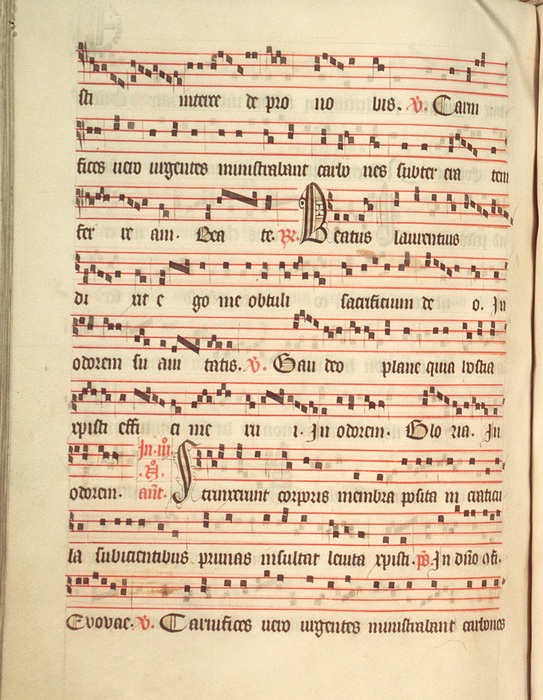 sti intere de pro no bis. V. Carni
fices vero urgentes ministrabant carbo nes subter cra tem
fer re am. Bea te. R. Beatus laurentius
di xit e go me obtuli sacrificium de o. In
odorem su avi tatis. V. Gau deo plane quia hostia
xpisti effi ci me rui. In odorem. Glo ria. In
odorem. In iii N. ant. Strinxerunt corporis membra posita in craticu
la subicientibus prunas insultat levita xpisti. ps. In dno ofi.
Evovae. V. Carnifices vero urgentes ministrabant carbones